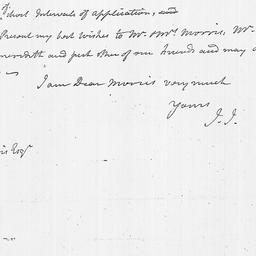 of
short Intervals of application, and
Present my best wishes to Mr. Mrs. Morris, Mr.
meredith and such other of our friends and may a
I am Dear Morris very much
Yours
J. J.
is Esqr